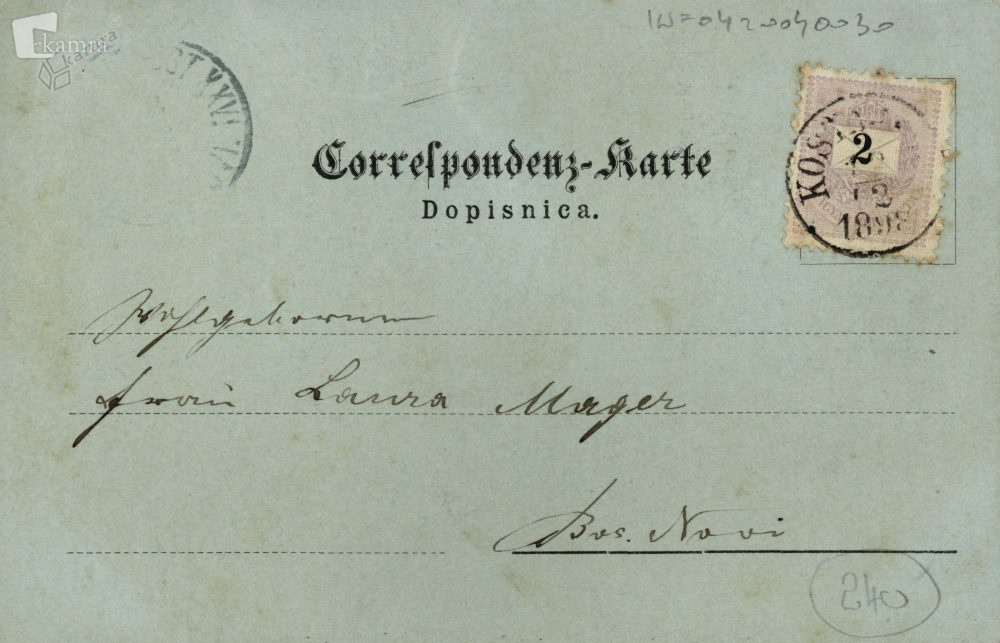 kamra
kamra
IN=0420040030
ST XXVI 7/2
Correspondenz-Karte
Dopisnica.
2
KOS
2
1898
Wohlgeboren
Frau Laura Mager
Bos. Novi
240